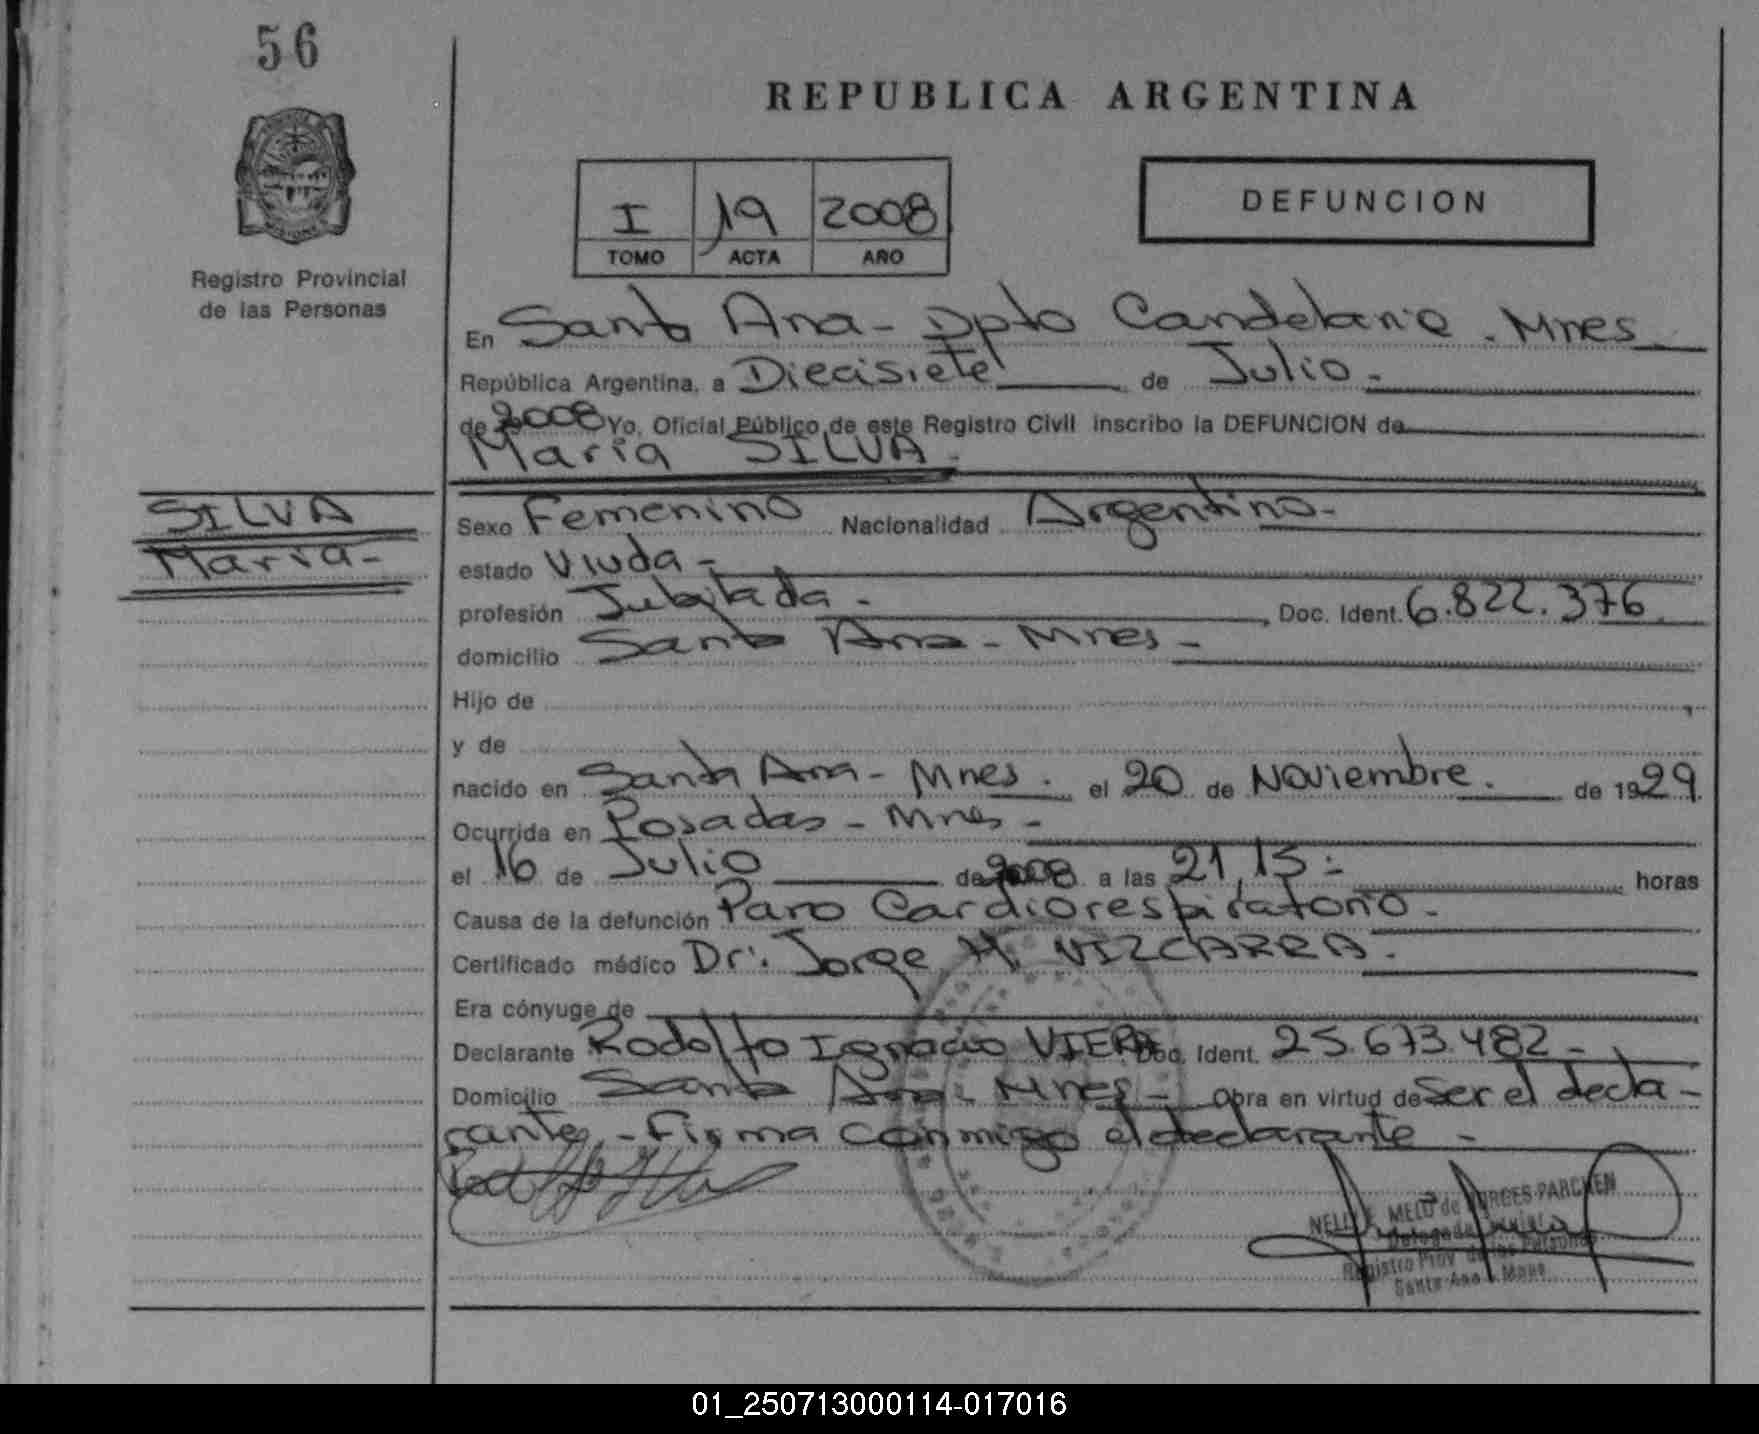 56
REPUBLICA ARGENTINA
I 19 2008
TOMO ACTA AÑO
DEFUNCION
Registro Provincial
de las Personas
En Santa Ana - Dpto Candelaria - Mnes
República Argentina, a Diecisiete de Julio -
de 2008 Yo, Oficial Público de este Registro Civil inscribo la DEFUNCION de
Maria SILVA -
SILVA
Maria -
Sexo Femenino Nacionalidad Argentina -
estado Viuda -
profesión Jubilada - , Doc. Ident. 6.822.376
domicilio Santa Ana - Mnes -
Hijo de ,
y de
nacido en Santa Ana - Mnes . el 20 de Noviembre . de 1929.
Ocurrida en Posadas - Mnes -
el 16 de Julio de 2008 a las 21,15 - horas
Causa de la defunción Paro Cardiorespiratorio -
Certificado médico Dr. Jorge M. VIZCARRA -
Era cónyuge de
Declarante Rodolfo Ignacio VIERA Doc. Ident. 25.673.482 -
Domicilio Santa Ana - Mnes - Obra en virtud de ser el decla-
rante, - Firma conmigo el declarante -
MELO de BORGES PARCHEN
Registro Prov. de las Personas
Santa Ana - Mnes
01_250713000114-017016